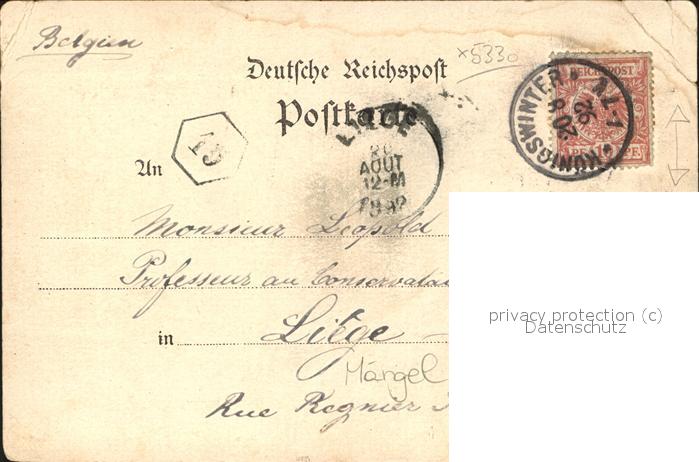 Belgien
x5330
Deutsche Reichspost
Postkarte
REICHSPOST
KÖNIGSWINTER
LIÈGE
AOUT
12-M
1892
An
Monsieur Léopold
Professeur au Conservatoi
in Liège
Mängel
Rue Regnier
privacy protection (c)
Datenschutz